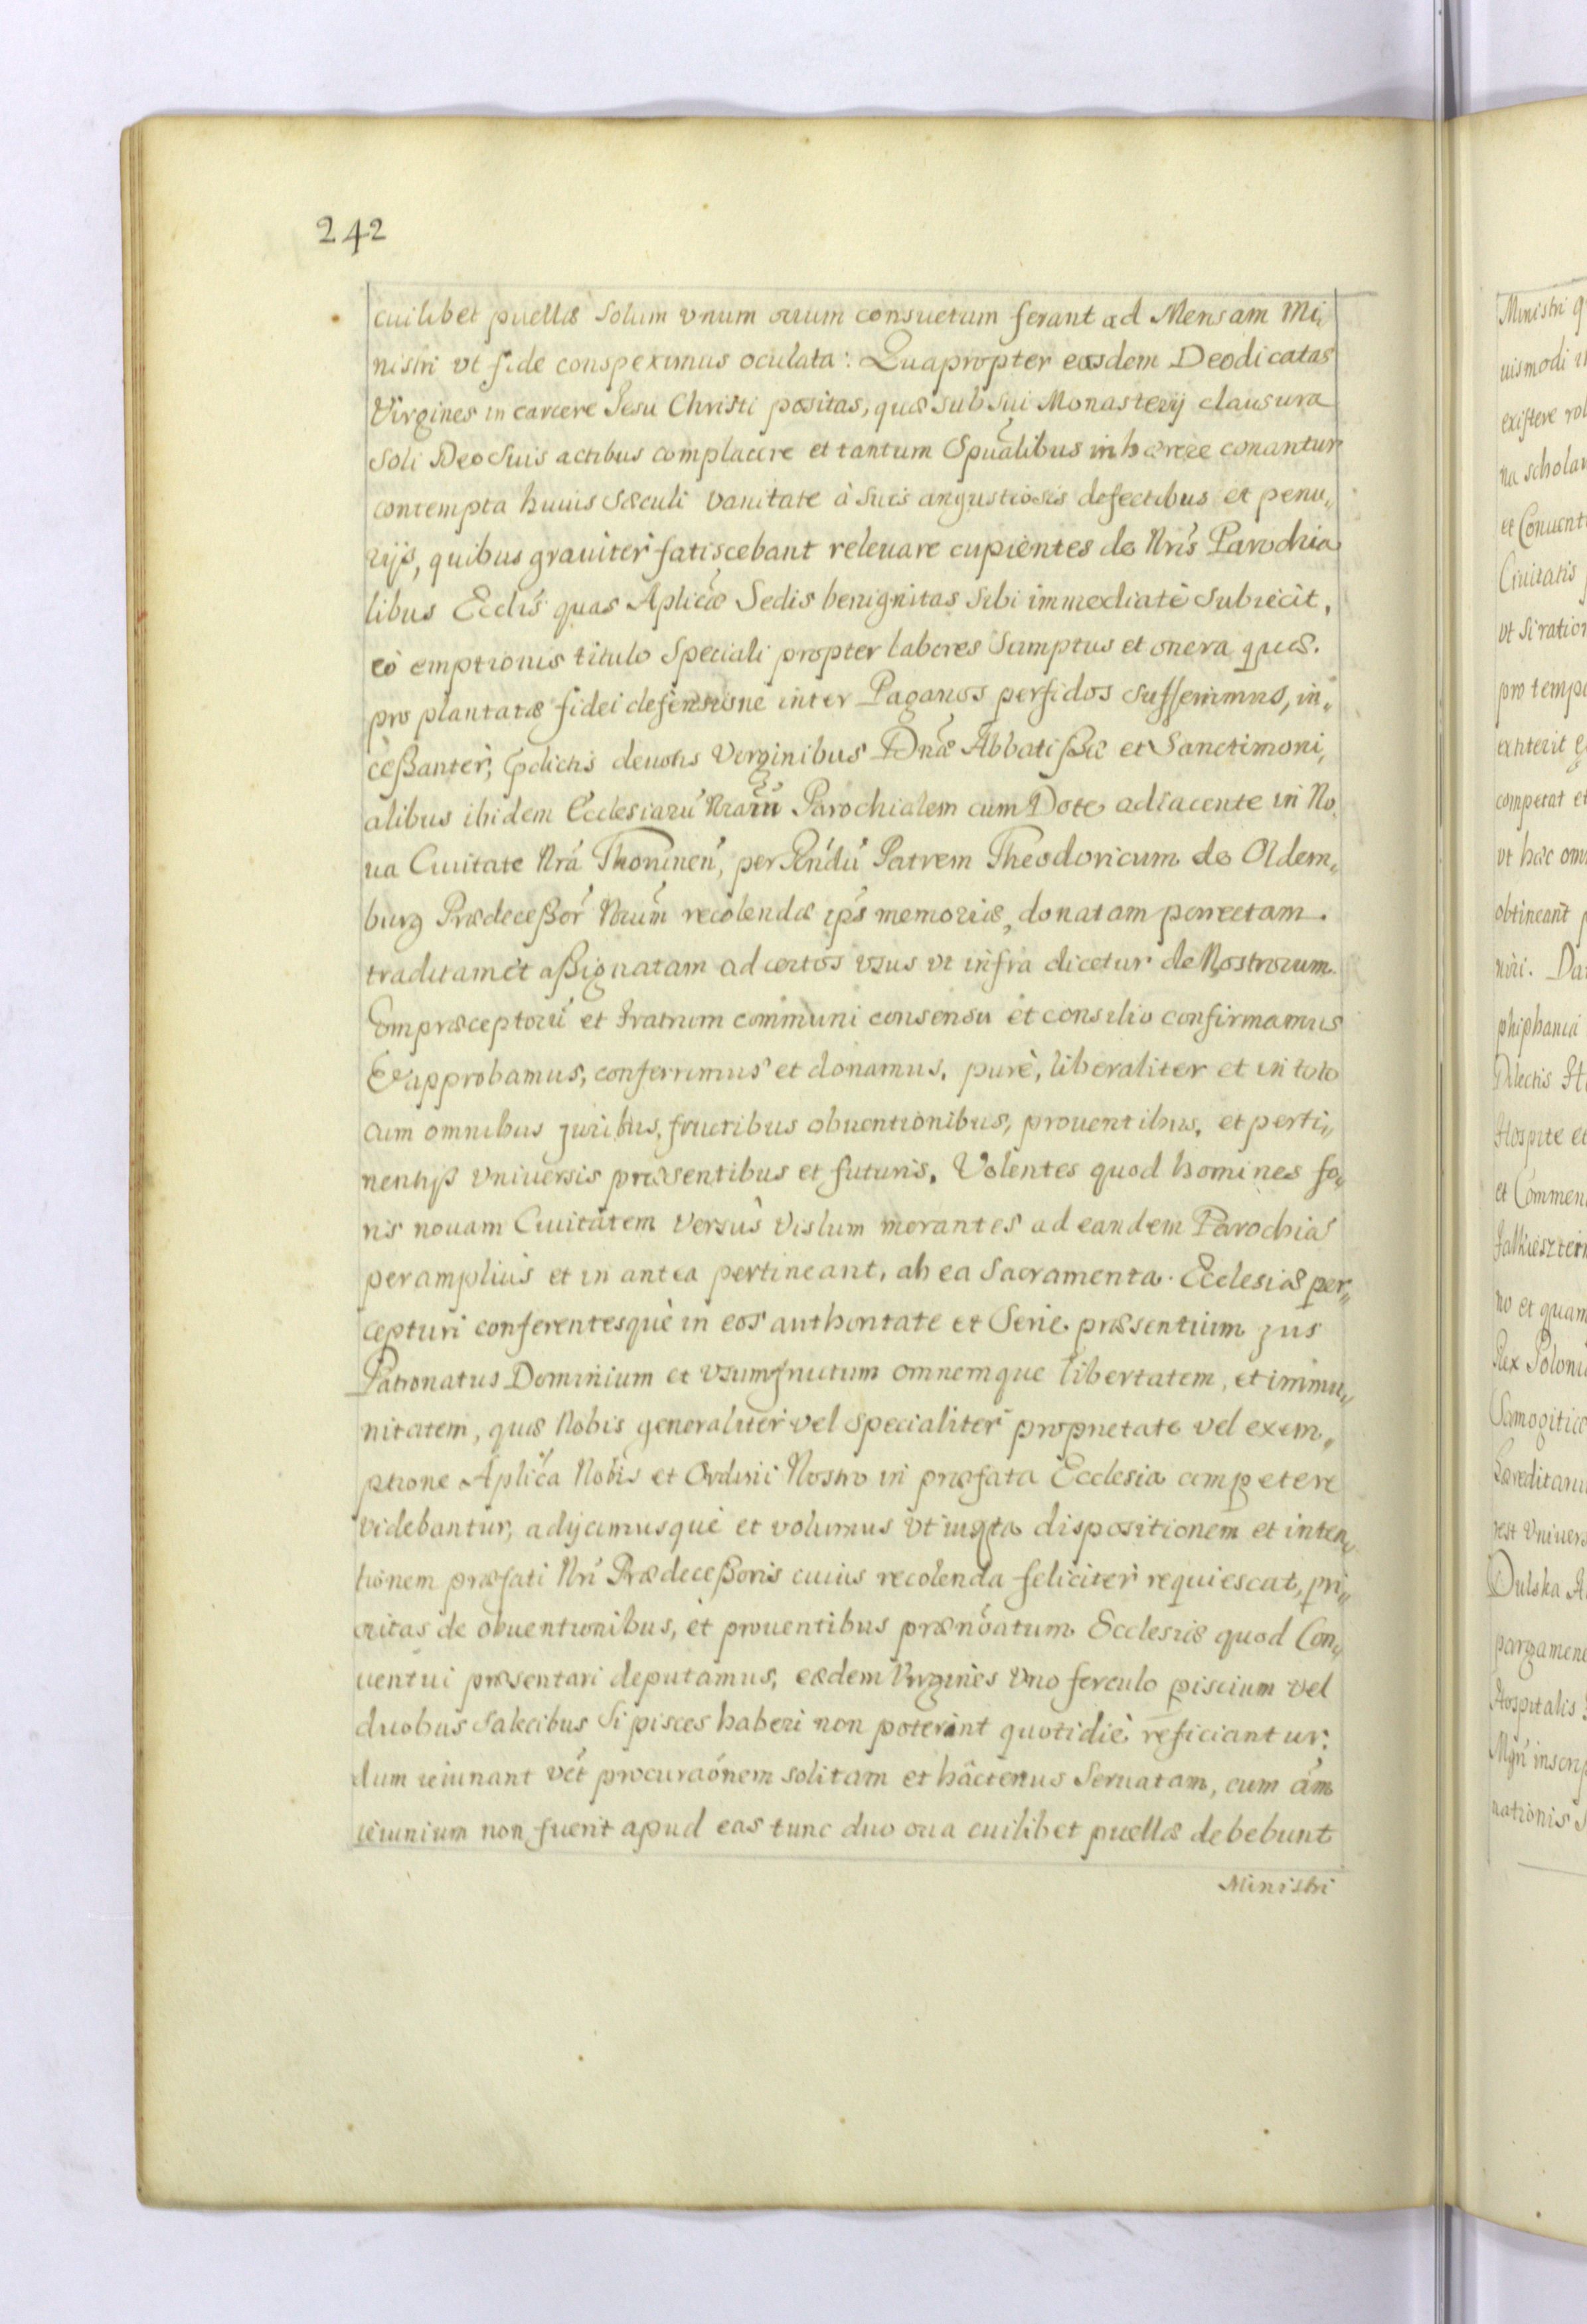 242
cuilibet puellæ Solum vnum ouum consuetum ferant ad Mensam Mi„
nistri vt fide conspeximus oculata: Quapropter easdem Deodicatas
Virgines in carcere Jesu Christi positas, quæ sub sui Monasterij clausura
Soli Deo Suis actibus complacere et tantum Spũalibus inhærere conantur
contempta huius Sæculi vanitate à suis angustiosis defectibus et penu„
rijs, quibus grauiter fatiscebant releuare cupientes de Nris Parochia
libus Ecclis quas Aplicæ Sedis benignitas Sibi immediatè Subiecit,
eò emptionis titulo Speciali propter labores Sumptus et onera quæ.
pro plantatæ fidei defensione inter Paganos perfidos sufferimus, in„
ceßanter, p̃dictis deuotis Virginibus Dnæ Abbatißæ et Sanctimoni„
alibus ibidem Ecclesiarũ Nrarũ Parochialem cum Dote adiacente in No„
ua Ciuitate Nrã Thorunen̄, per Rndũ Patrem Theodoricum de Oldem„
burg Prædeceßor̃ Nrũm recolendæ ips memoriæ, donatam porrectam.
traditam et aßignatam ad certos vsus vt infra dicetur de Nostrorum
Compræceptorũ et fratrum communi consensu et consilio confirmamus
Et approbamus, conferrimus et donamus, purè, liberaliter et in toto
cum omnibus juribus, fructibus obuentionibus, prouentibus, et perti„
nentijs vniuersis præsentibus et futuris. Volentes quod homines fo„
ris nouam Ciuitatem versus vislum morantes ad eandem Parochiã
peramplius et in antea pertineant, ab ea Sacramenta. Ecclesiæ per„
cepturi conferentesquè in eos authoritate et Serie præsentium jus
Patronatus Dominium et vsumfructum omnemque libertatem, et immu„
nitatem, quæ Nobis generaliter vel specialiter proprietate vel exem„
ptione Aplica Nobis et Ordini Nostro in præfata Ecclesia competere
videbantur, adijcimusquè et volumus vt iuxta dispositionem et inten„
tionem præfati Nri Prædeceßoris cuius recolenda feliciter requiescat, pri„
uitas de obuentionibus, et prouentibus prænõatum Ecclesiæ quod Con„
uentui præsentari deputamus, eædem Virgines vno ferculo piscium vel
duobus Salecibus Si pisces haberi non poterint quotidiè reficiantur,
dum ieiunant vet procuraõnem solitam et hâctenus Seruatam, cum ãm
ieiunium non fuerit apud eas tunc duo oua cuilibet puellæ debebunt
Ministri